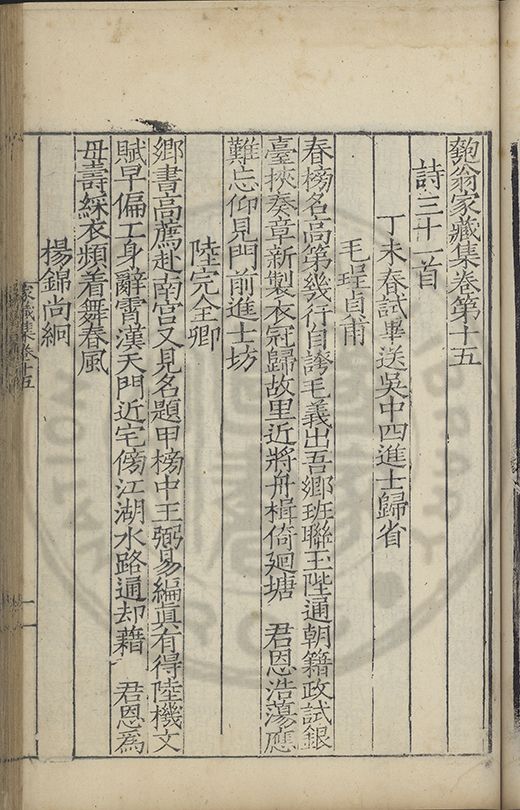 匏翁家藏集卷第十五
詩三十一首
丁未春試畢送吳中四進士歸省
毛珵貞甫
春榜名高第幾行自誇毛義出吾鄉班聯玉陛通朝籍政試銀
臺挾奏章新製衣冠歸故里近將舟楫倚迴塘 君恩浩蕩應
難忘仰見門前進士坊
陸完全卿
鄉書高薦赴南宮又見名題甲榜中王弼易編真有得陸機文
賦早偏工身辭霄漢天門近宅傍江湖水路通却藉 君恩為
母壽綵衣頻着舞春風
楊錦尚絅
家藏集卷十五